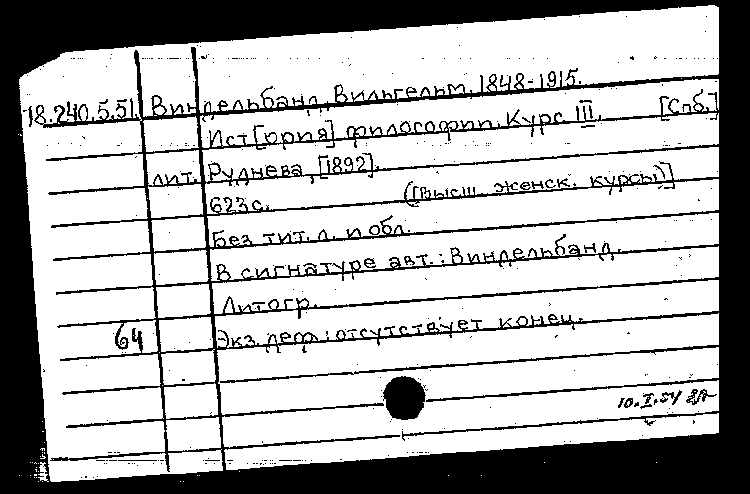 18.240.5.51. Виндельбанд, Вильгельм, 1848-1915.
Ист[ория] философии. Курс III. [Спб.]
лит. Руднева, [1892].
623 с. ([Высш. женск. курсы)]
Без тит. л. и обл.
В сигнатуре авт.: Виндельбанд.
Литогр.
64 Экз. деф.: отсутствует конец.
10.I.54